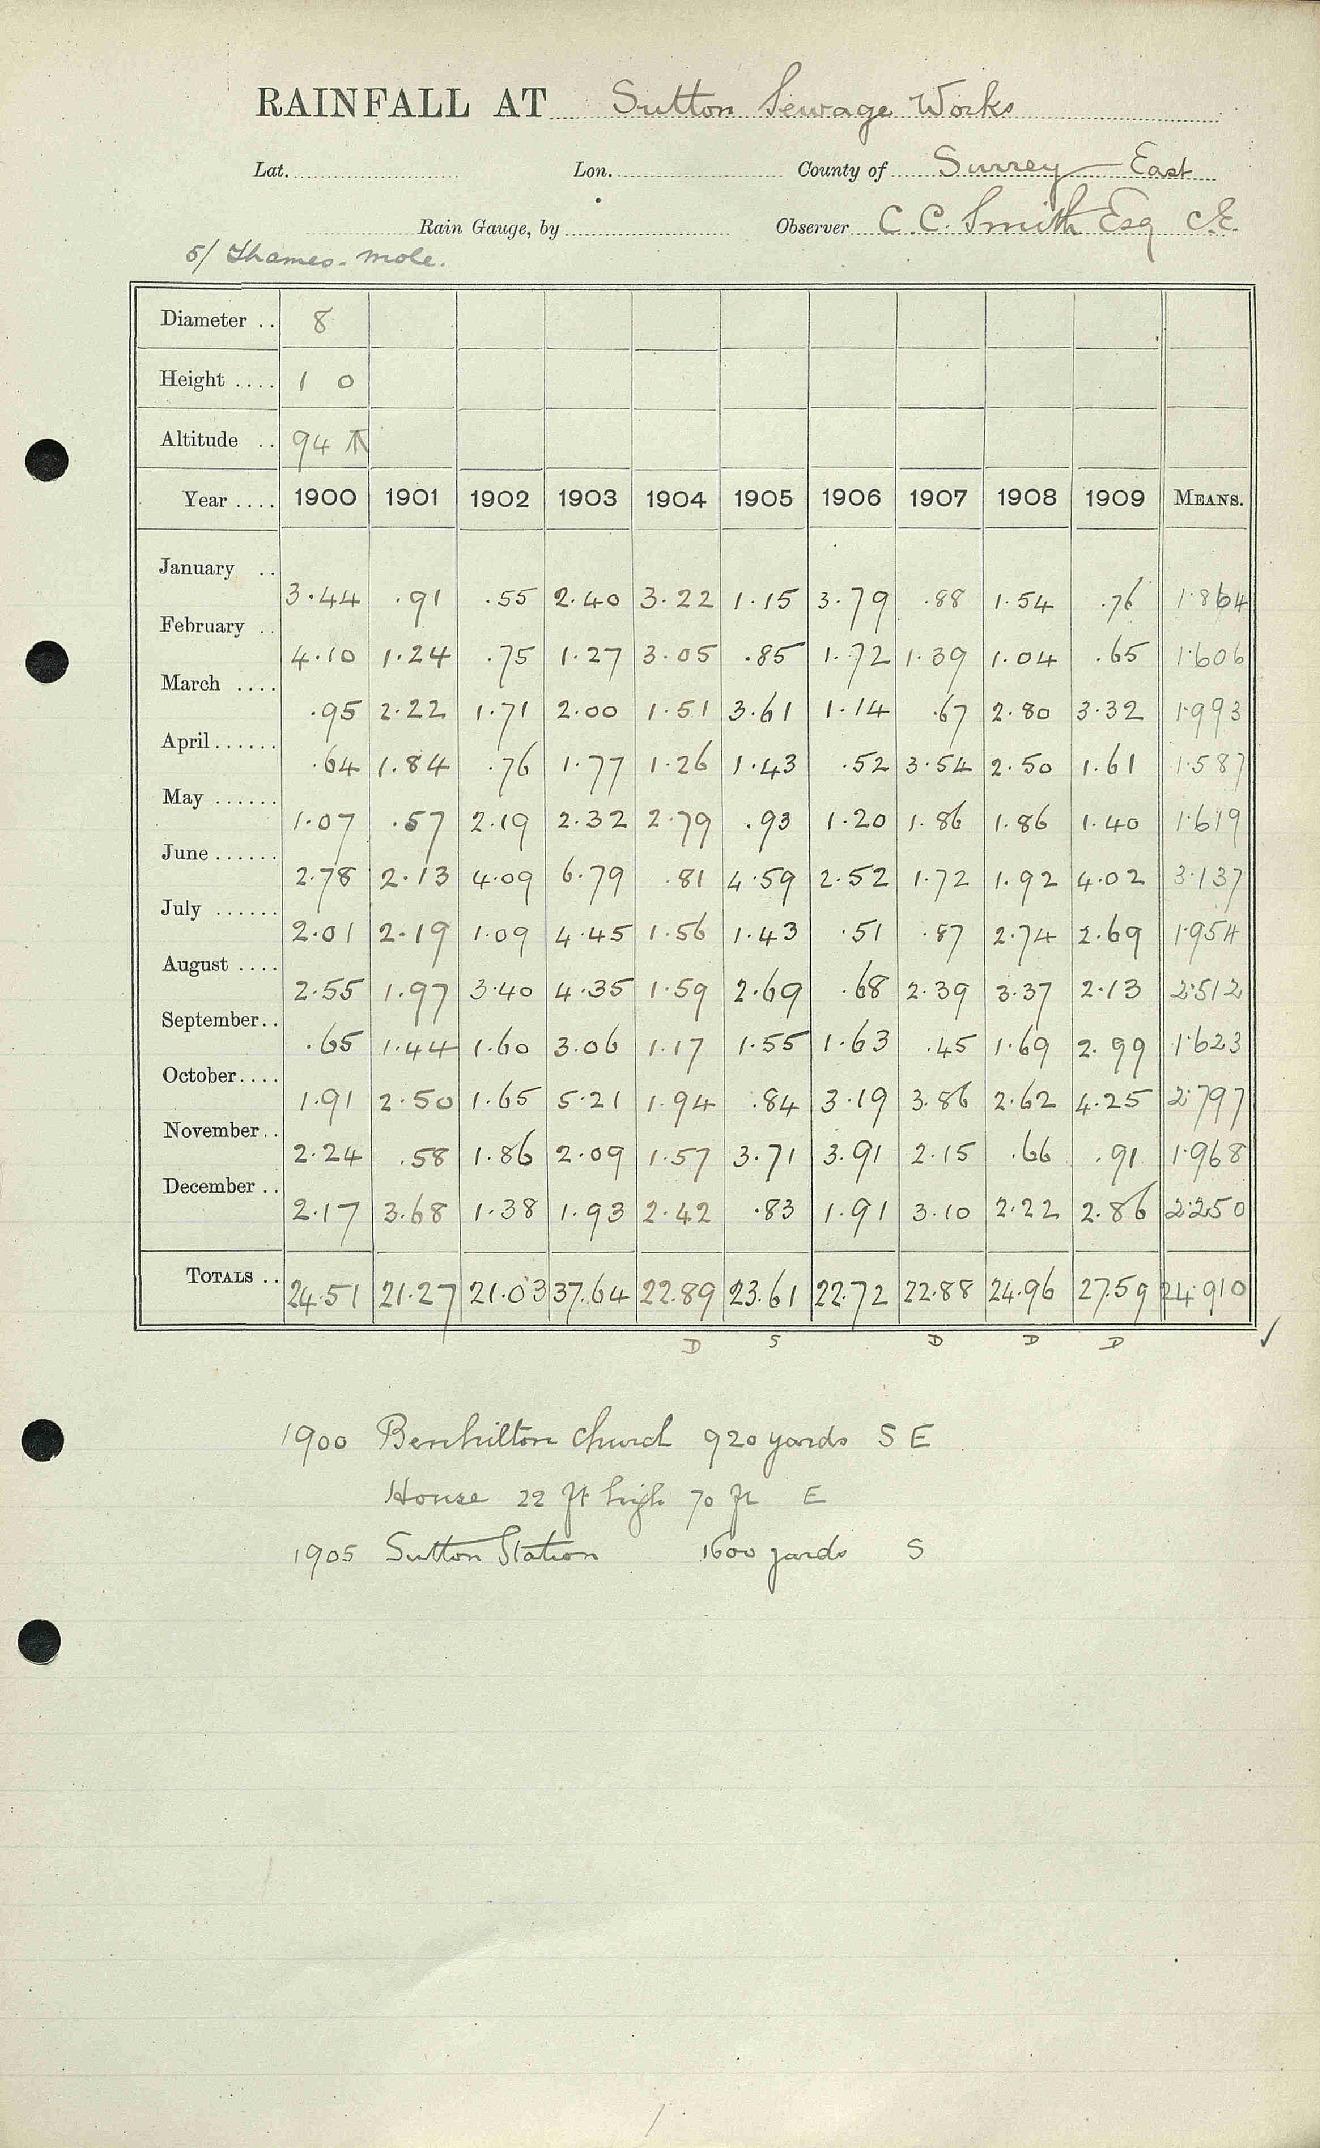 RAINFALL AT Sutton Sewage Works
Lat. Lon. County of Surrey East
Rain Gauge, by Observer C. C. Smith Esq C.E.
5/ Thames-Mole.
Diameter .. 8
Height .... 1 0
Altitude .. 94 ↑
Year .... 1900 1901 1902 1903 1904 1905 1906 1907 1908 1909 MEANS.
January .. 3.44 .91 .55 2.40 3.22 1.15 3.79 .88 1.54 .76 1.864
February .. 4.10 1.24 .75 1.27 3.05 .85 1.72 1.39 1.04 .65 1.606
March .... .95 2.22 1.71 2.00 1.51 3.61 1.14 .67 2.80 3.32 1.993
April...... .64 1.84 .76 1.77 1.26 1.43 .52 3.54 2.50 1.61 1.587
May ...... 1.07 .57 2.19 2.32 2.79 .93 1.20 1.86 1.86 1.40 1.619
June ...... 2.78 2.13 4.09 6.79 .81 4.59 2.52 1.72 1.92 4.02 3.137
July ...... 2.01 2.19 1.09 4.45 1.56 1.43 .51 .87 2.74 2.69 1.954
August .... 2.55 1.97 3.40 4.35 1.59 2.69 .68 2.39 3.37 2.13 2.512
September.. .65 1.44 1.60 3.06 1.17 1.55 1.63 .45 1.69 2.99 1.623
October.... 1.91 2.50 1.65 5.21 1.94 .84 3.19 3.86 2.62 4.25 2.797
November.. 2.24 .58 1.86 2.09 1.57 3.71 3.91 2.15 .66 .91 1.968
December .. 2.17 3.68 1.38 1.93 2.42 .83 1.91 3.10 2.22 2.86 2.250
TOTALS .. 24.51 21.27 21.03 37.64 22.89 23.61 22.72 22.88 24.96 27.59 24.910
D S D D D ✓
1900 Benhilton Church 920 yards S E
House 22 ft high 70 ft E
1905 Sutton Station 1600 yards S